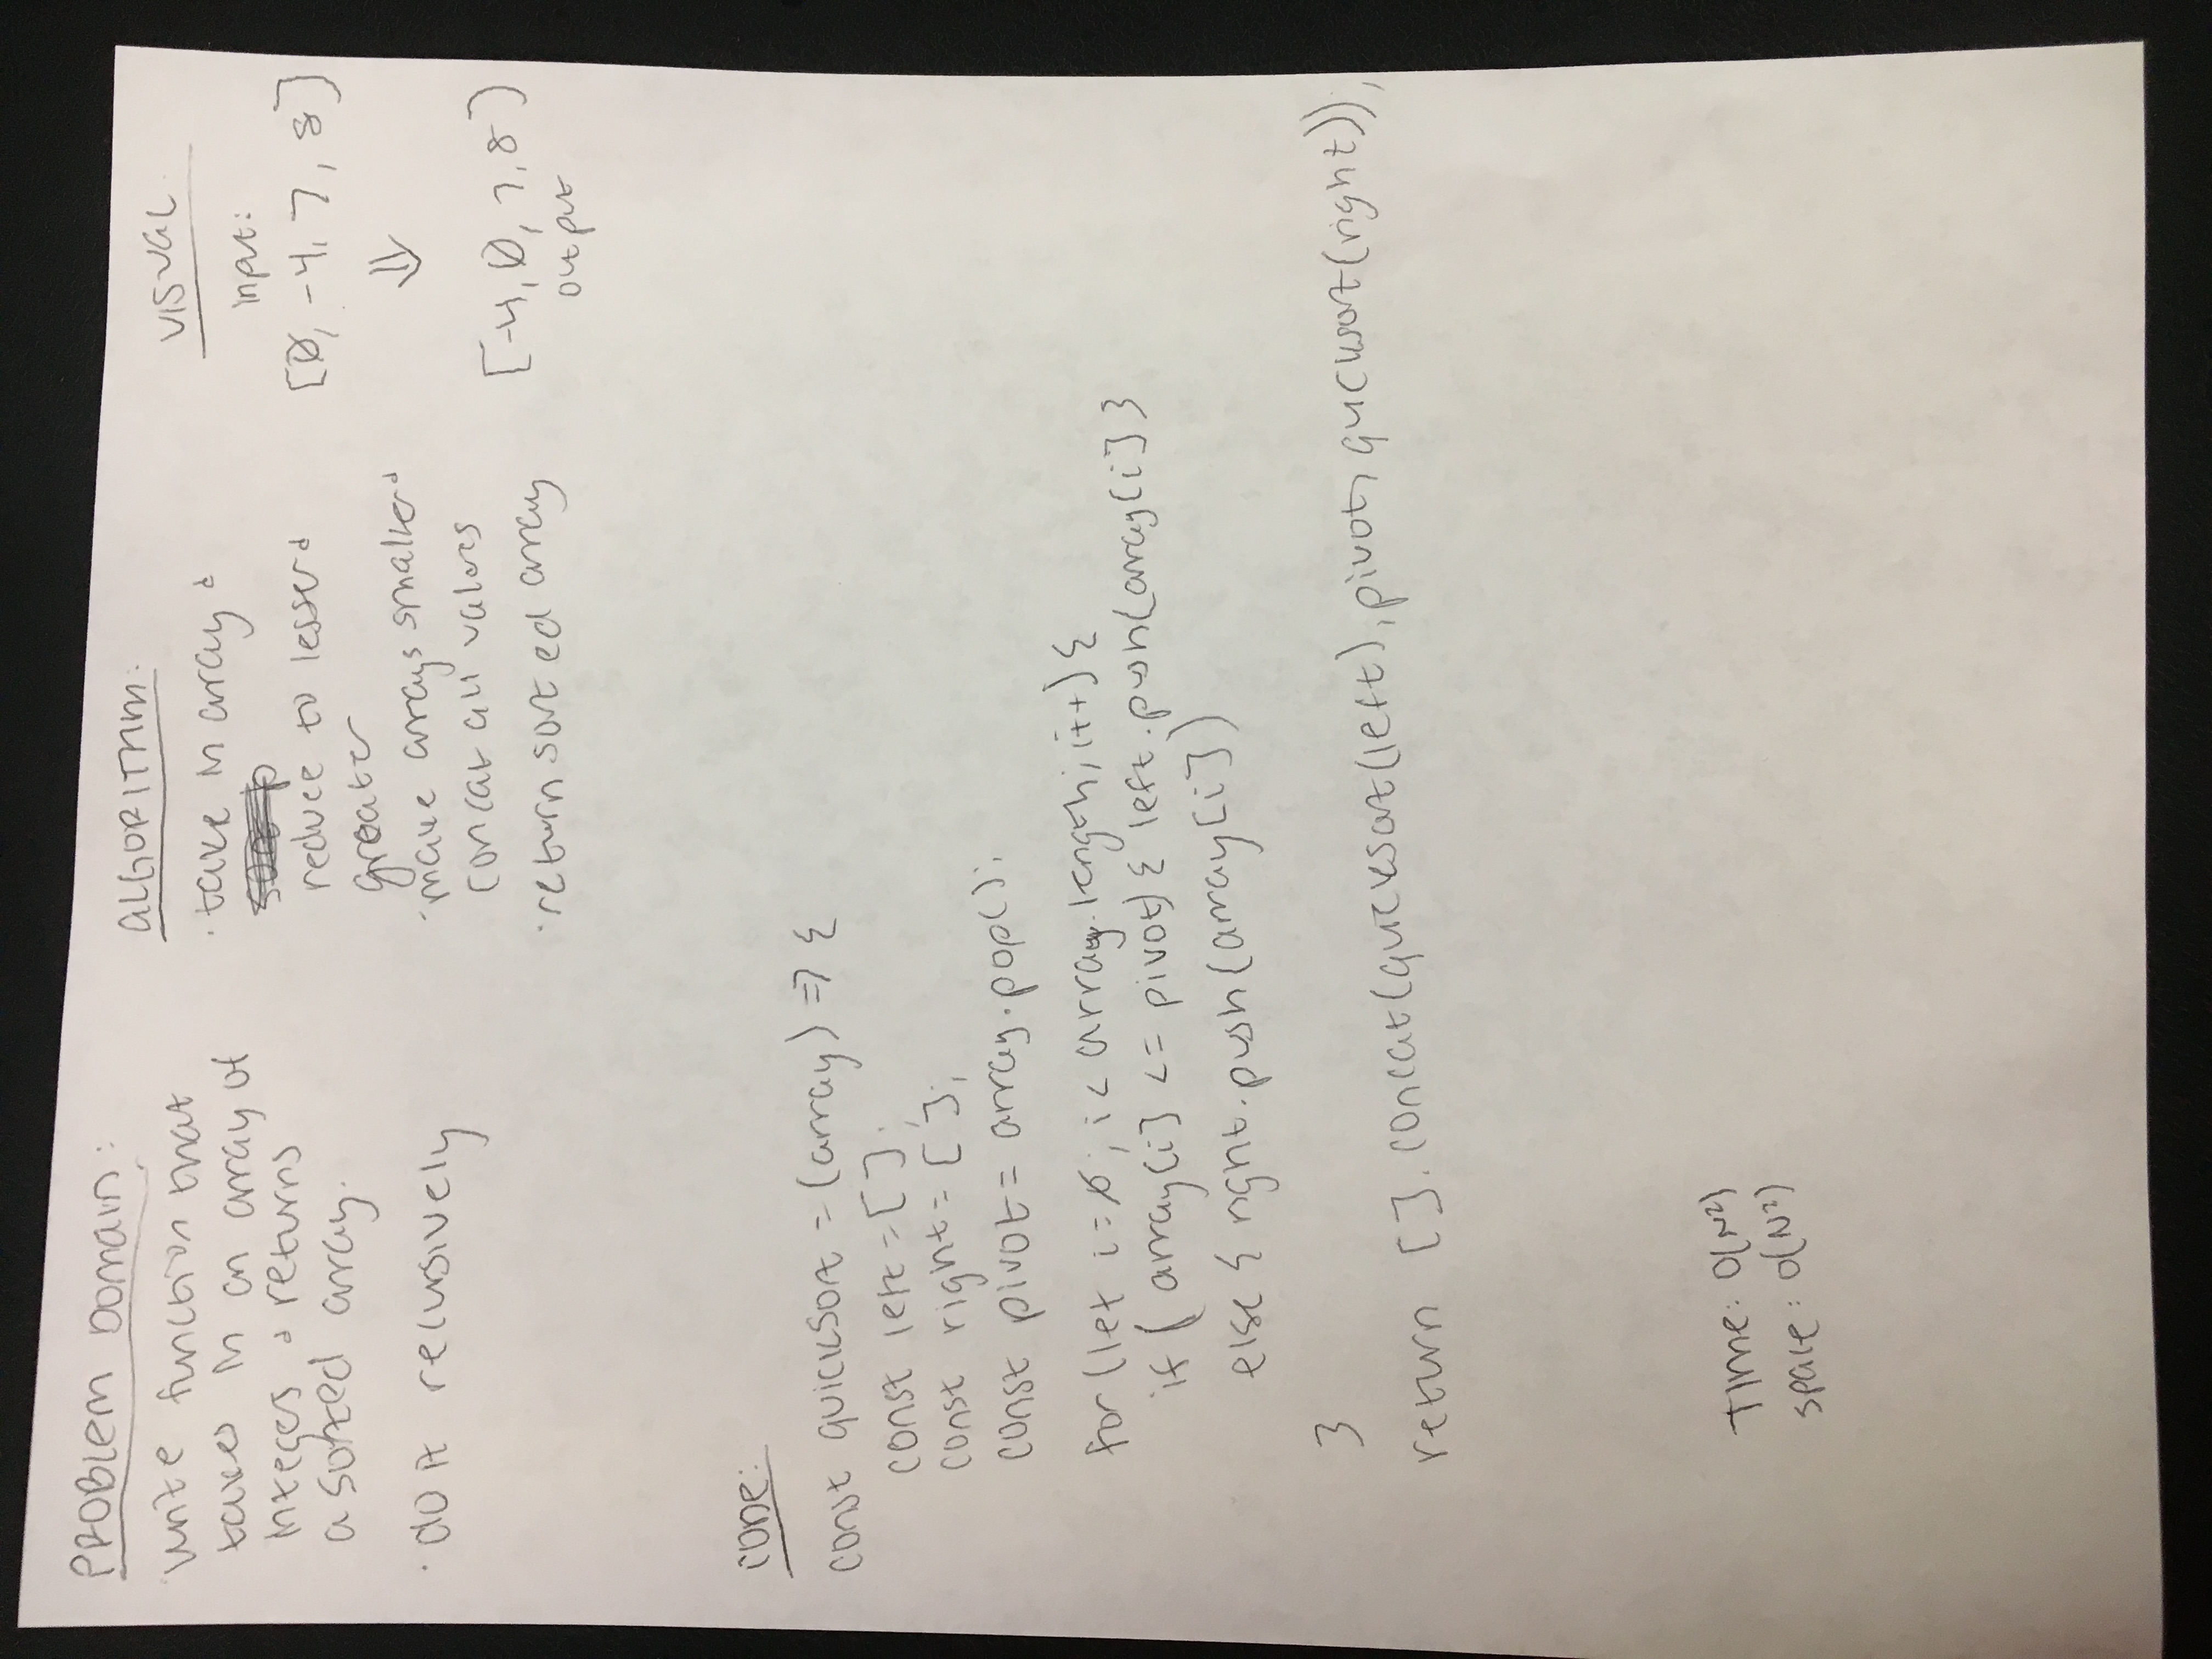 PROBLEM DOMAIN:
· write function that
takes in an array of
integers & returns
a sorted array.
· do it recursively
ALGORITHM:
· take in array &
reduce to lesser &
greater
· make arrays smaller &
concat all values
· return sorted array
VISUAL
input:
[0, -4, 7, 8]
⇓
[-4, 0, 7, 8]
output
CODE:
const quicksort = (array) => {
const left = [ ];
const right = [ ];
const pivot = array.pop();
for (let i = 0; i < array.length; i++) {
if ( array[i] <= pivot) { left.push(array[i] }
else { right.push(array[i])
}
return [ ].concat(quicksort(left), pivot, quicksort(right));
Time: O(N²)
space: O(N²)